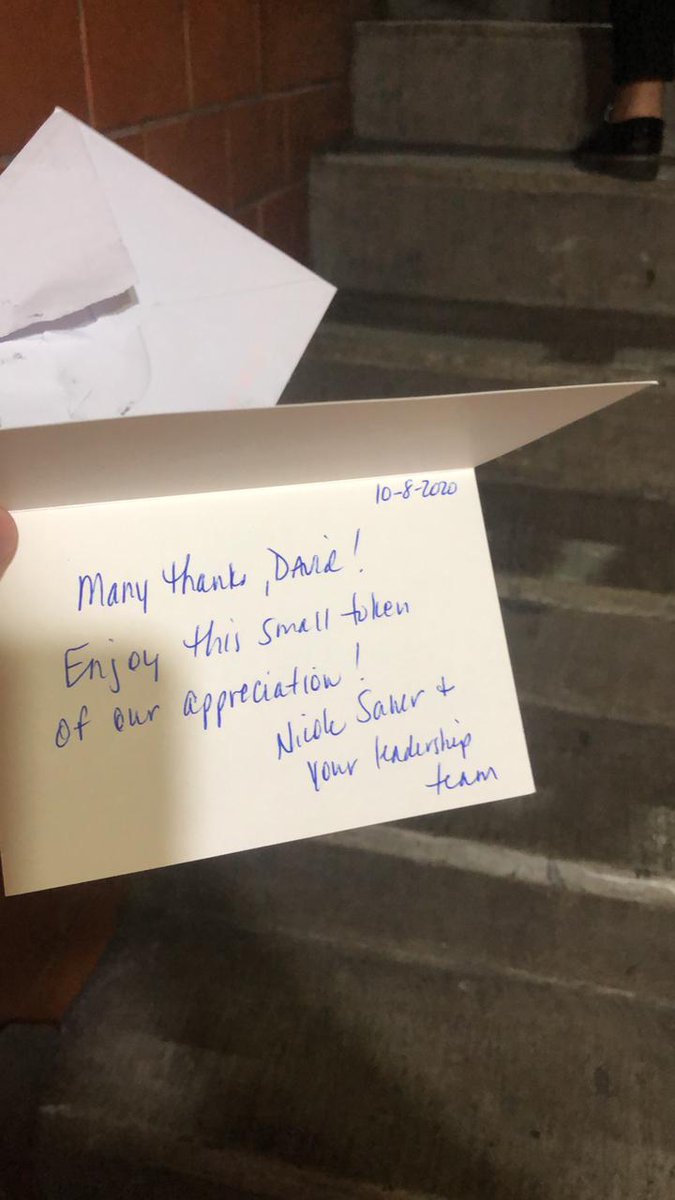 10-8-2020
Many thanks, David!
Enjoy this small token
of our appreciation!
Nicole Saher +
your leadership
team